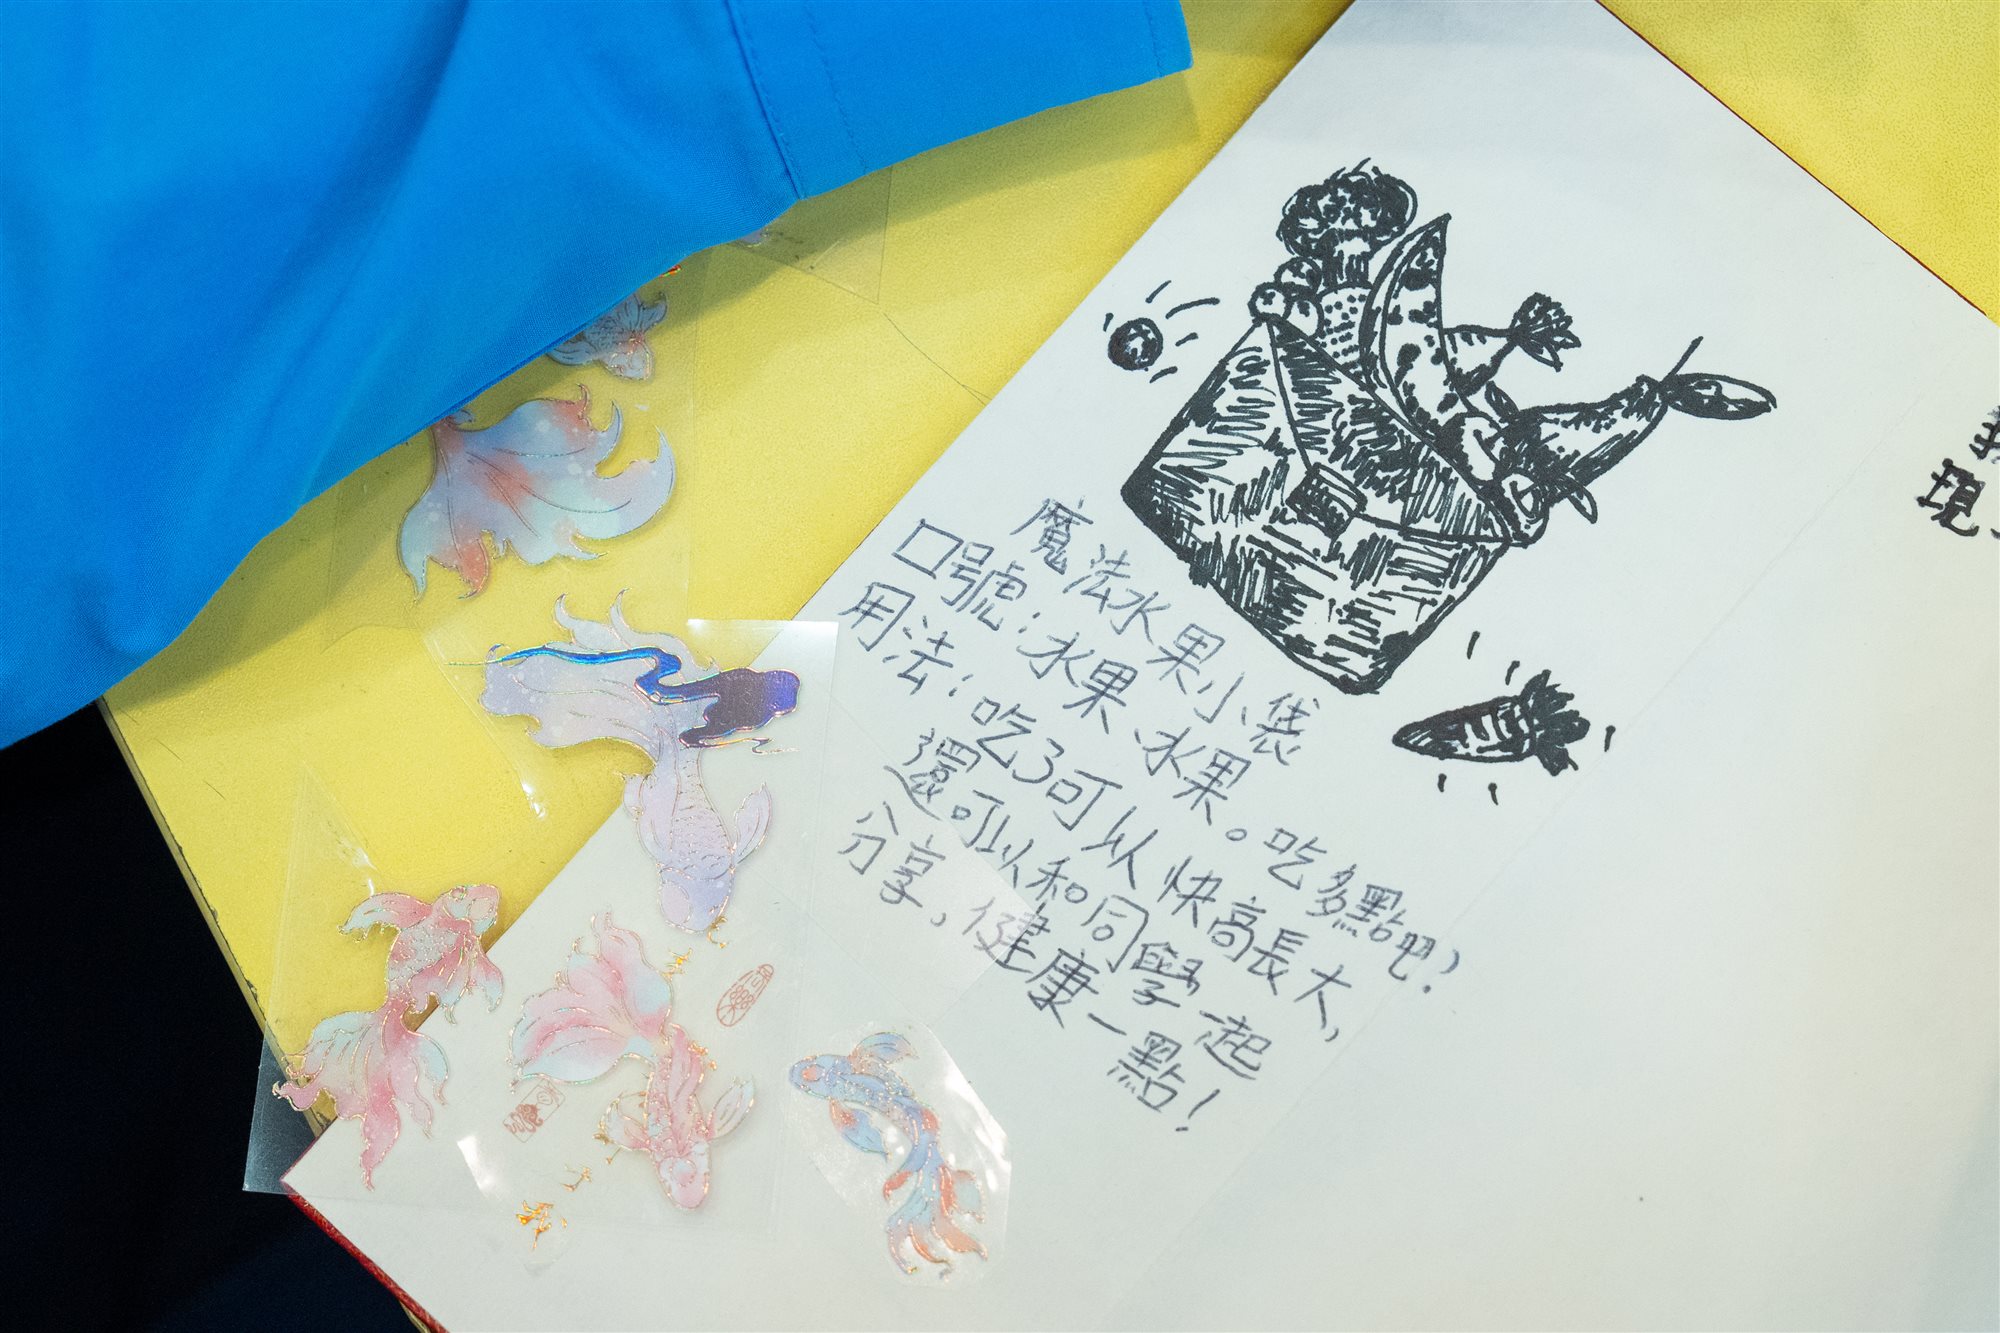 魔法水果小袋
口號：水果、水果。吃多點吧？
用法：吃了可以快高長大，
還可以和同學一起
分享，健康一點！
現